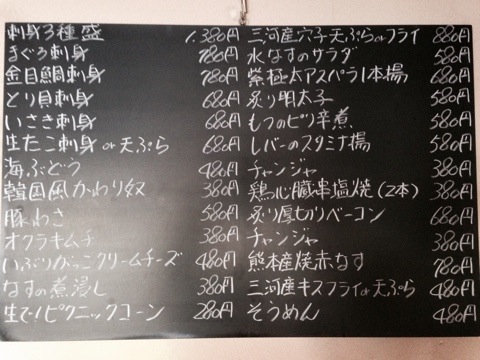 刺身3種盛 1,380円
まぐろ刺身 780円
金目鯛刺身 780円
とり貝刺身 680円
いさき刺身 680円
生たこ刺身or天ぷら 680円
海ぶどう 480円
韓国風かわり奴 380円
豚わさ 580円
オクラキムチ 380円
いぶりがっこクリームチーズ 480円
なすの煮浸し 380円
生で!ピクニックコーン 280円
三河産穴子天ぷらorフライ 880円
水なすのサラダ 580円
紫極太アスパラ1本揚 680円
炙り明太子 580円
もつのピリ辛煮 580円
レバーのスタミナ揚 580円
チャンジャ 380円
鶏心臓串塩焼(2本) 380円
炙り厚切りベーコン 680円
チャンジャ 380円
熊本産焼赤なす 780円
三河産キスフライor天ぷら 480円
そうめん 480円